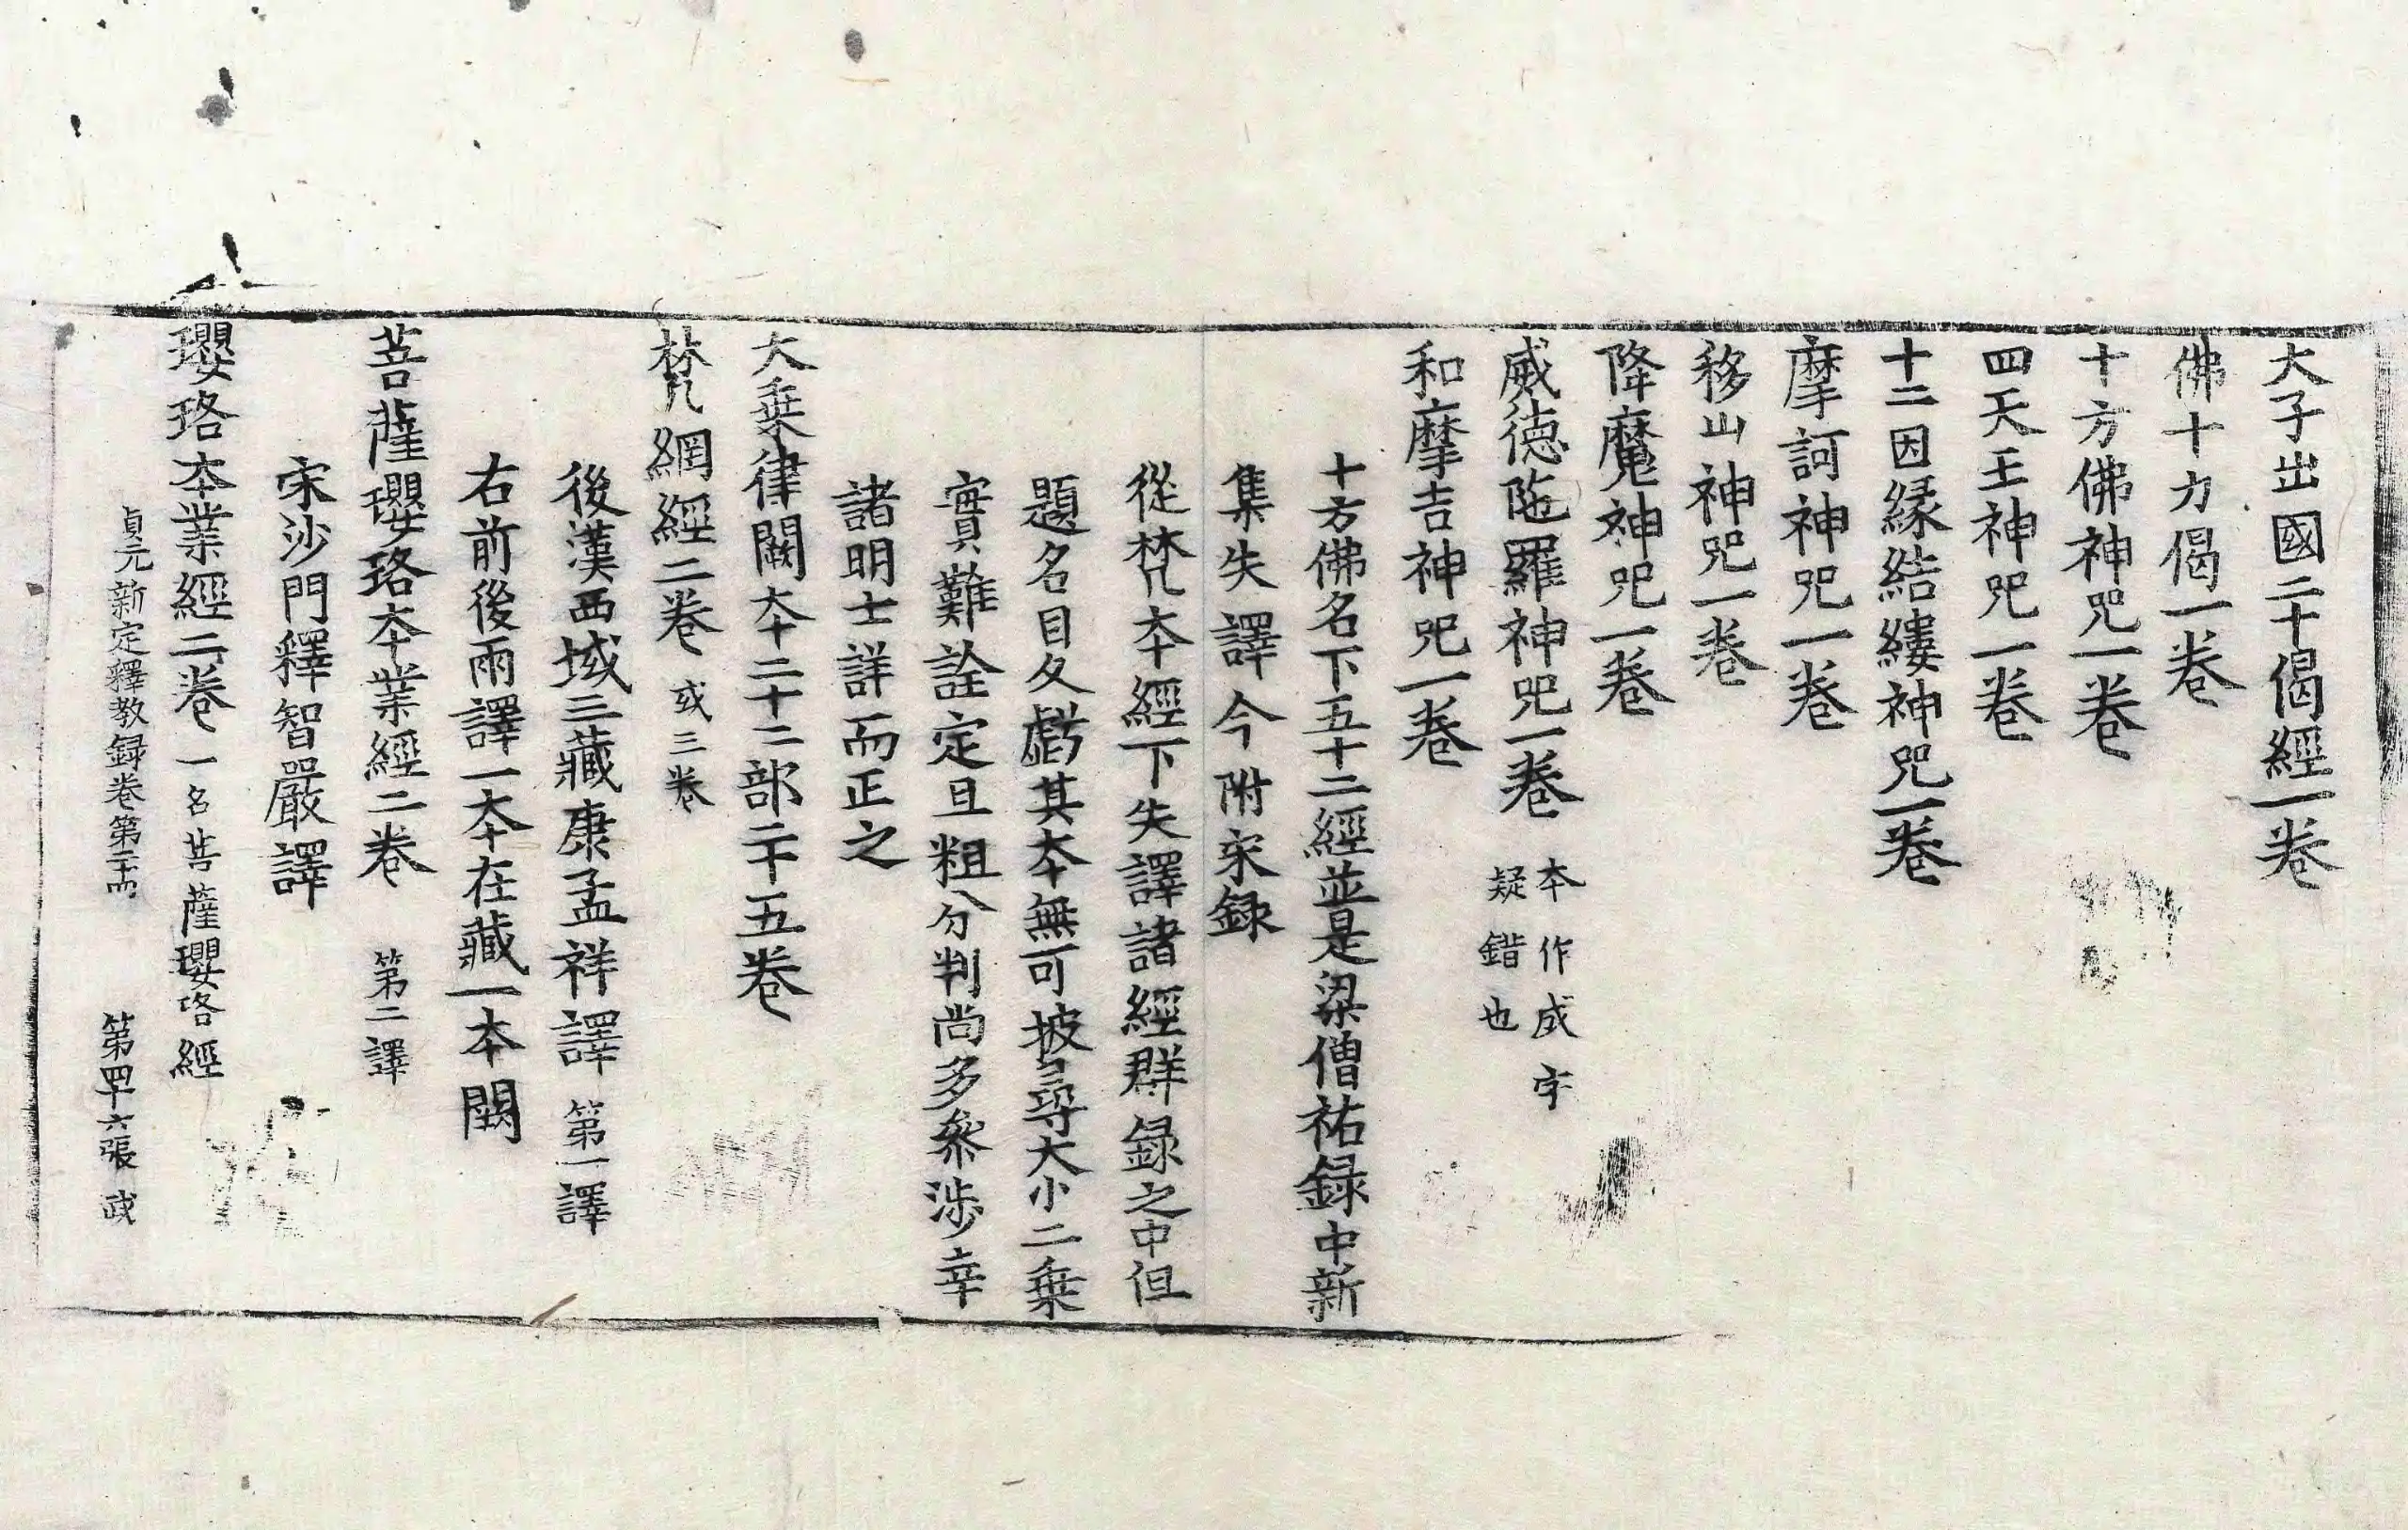 大子出國二十偈經一卷
佛十力偈一卷
十方佛神呪一卷
四天王神呪一卷
十二因緣結縷神呪一卷
摩訶神呪一卷
移山神呪一卷
降魔神呪一卷
威德陁羅神呪一卷 本作成字 疑錯也
和摩吉神呪一卷
十方佛名下五十二經並是梁僧祐録中新
集失譯今附宋録
從梵本經下失譯諸經群録之中但
題名目久虧其本無可披尋大小二乗
實難詮定且粗分判尚多叅涉幸
諸明士詳而正之
大乗律闕本二十二部二十五卷
梵網經二卷 或三卷
後漢西域三藏康孟祥譯 第一譯
右前後兩譯一本在藏一本闕
菩薩瓔珞本業經二卷 第二譯
宋沙門釋智嚴譯
瓔珞本業經二卷 一名菩薩瓔珞經
貞元新定釋教録卷第二十四 第四十六張